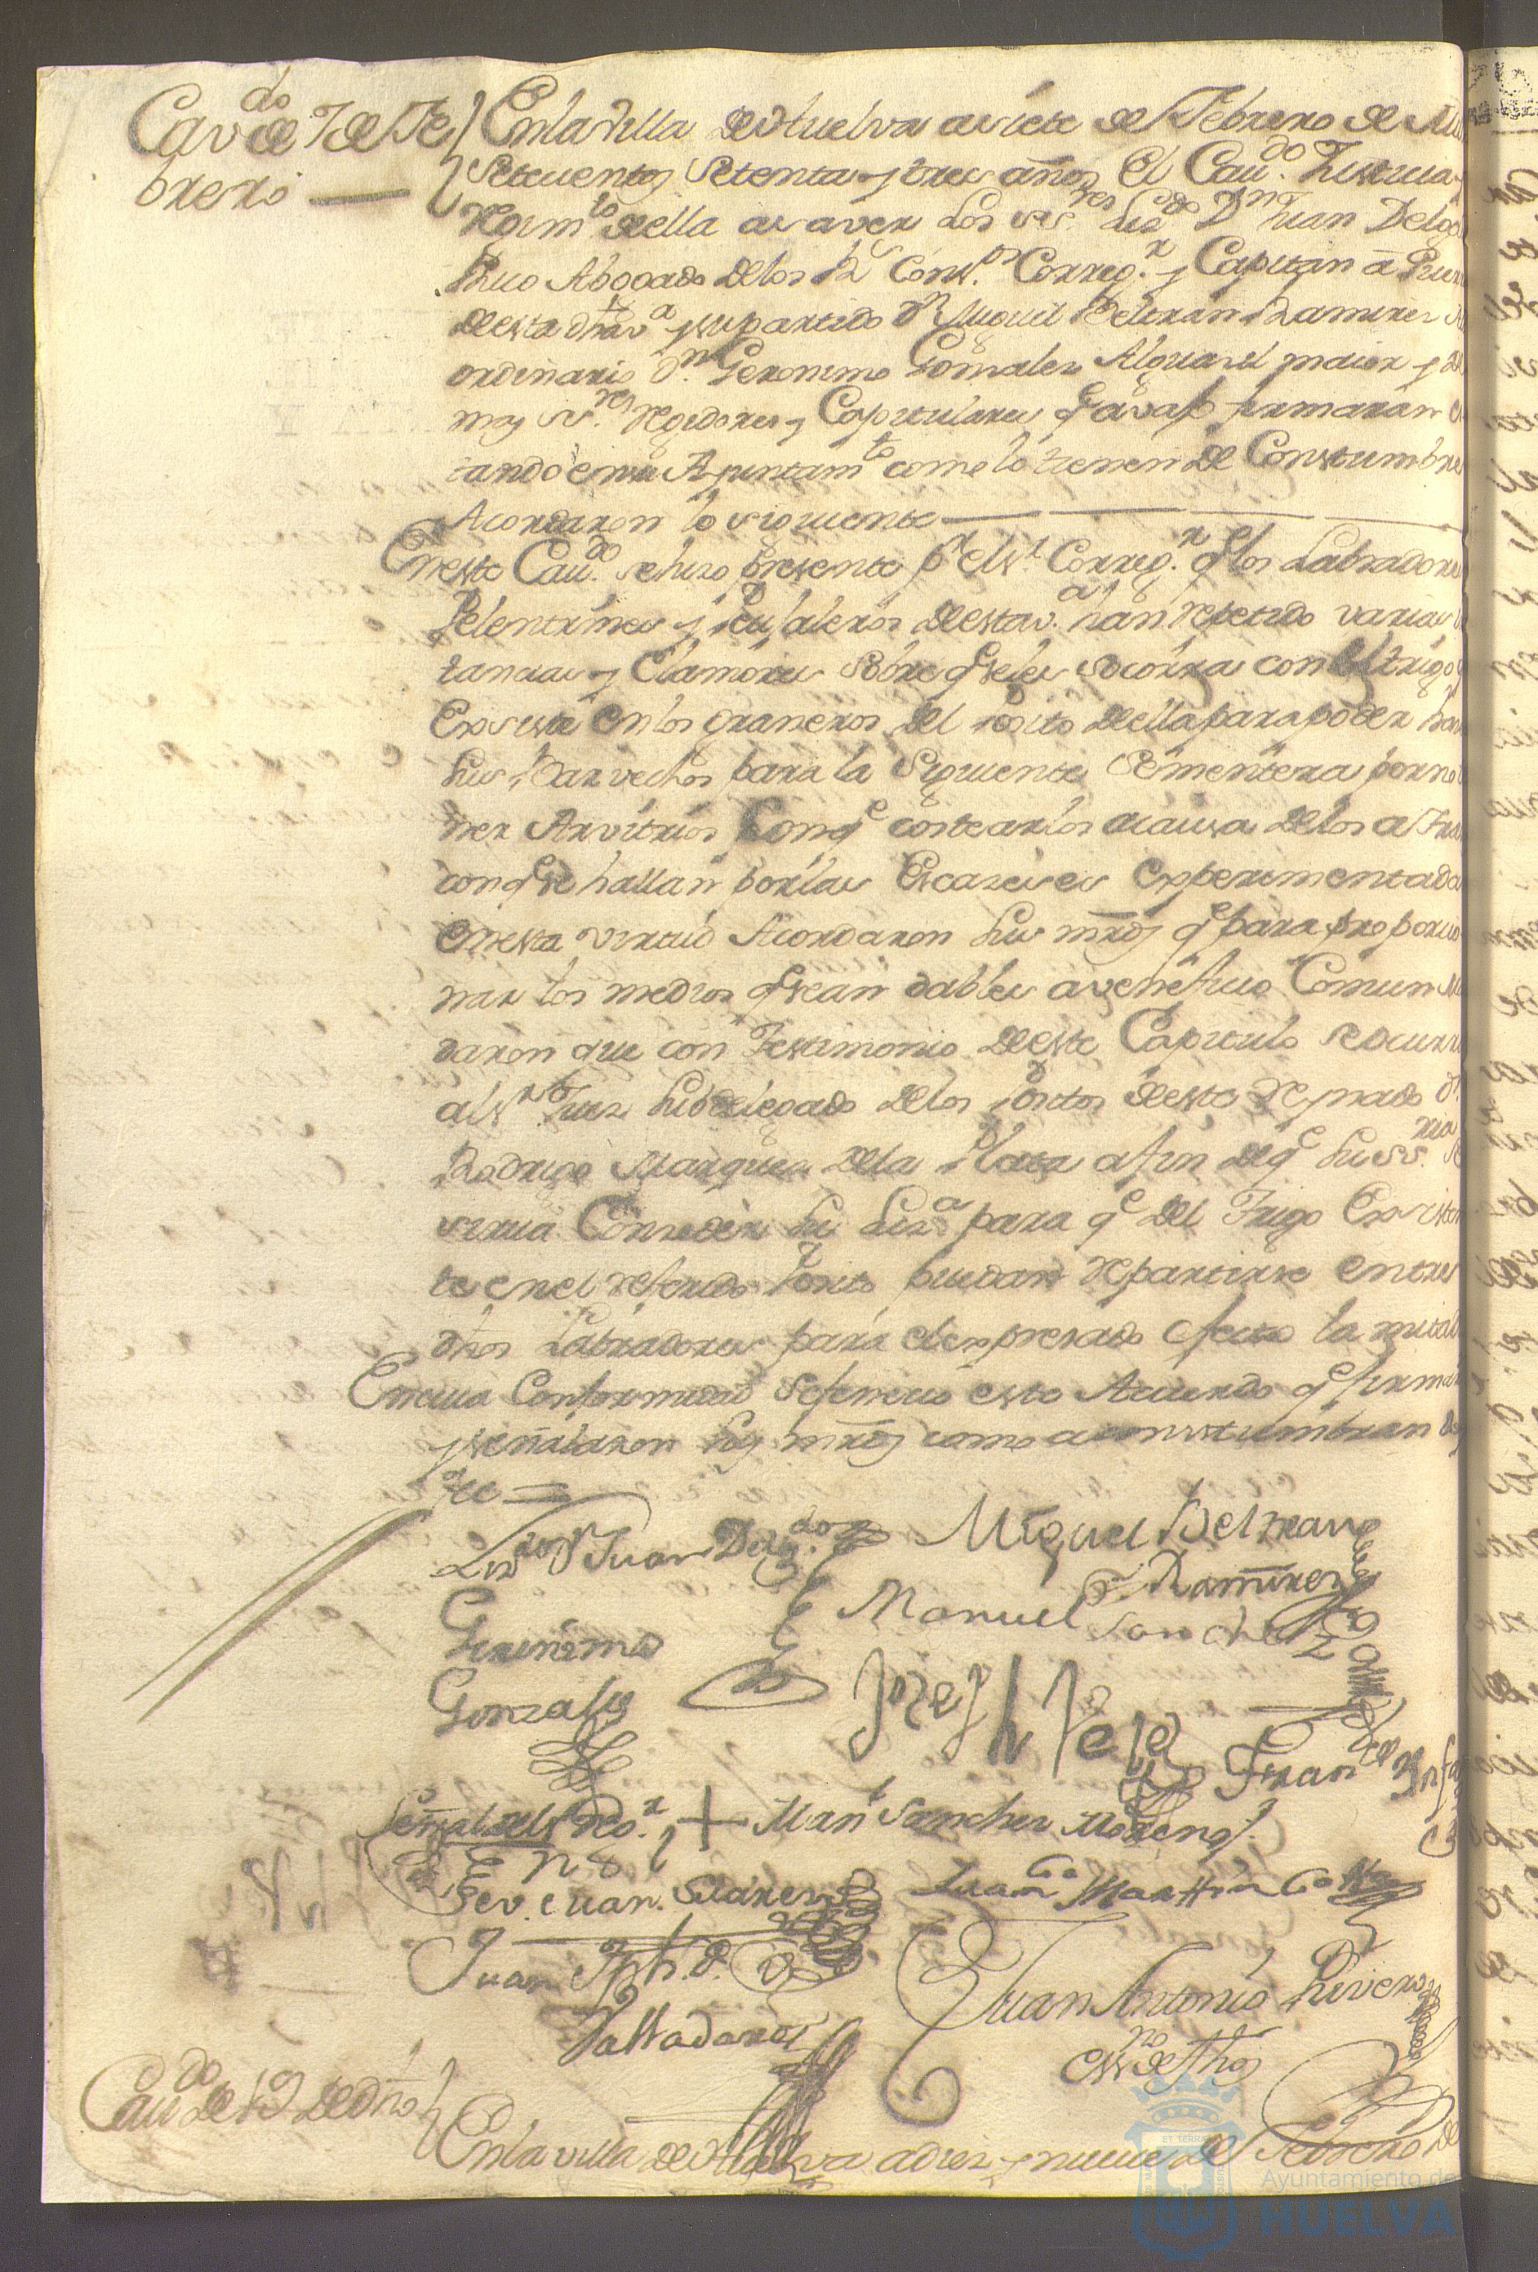 Cavdo de 7 de Fe
brero
En la Villa de Huelva a siete de Febrero de Mil
Setecientos Setenta y tres años El Caudo Justicia y
Regimto de ella a saver Los sres Lizdo Dn Juan Delgado
Rico Abogado de los Rs Consos Corregr y Capitan a Guerra
de esta dha va y su partido Dn Miguel Beltran Ramirez
ordinario Dn Geronimo Gonzalez Alguasil maior y de
mas sres Regidores y Capitulares q avajo firmaran es
tando en su Ayuntamto como lo tienen de Constumbre
Acordaron lo siguiente
En este Caudo se hizo presente pr el sr Corregr qe los Labradores
Pelentrines y Pejugaleros de esta va han repetido varias
tancias y Clamores sobre qe se les socorra con el trigo q
Existe en los graneros del Posito de ella para poder haser
sus Barvechos para la Siguiente Sementera por no
ner Arvitrios Con qe costearlos a causa de los atra
con qe se hallan por las Escaseses experimentadas
En esta virtud Acordaron sus mrds qe para proporcio
nar los medios qe sean dables a veneficio Comun
daron que con Testimonio de este Capitulo se ocurra
al sr Juez Subdelegado de los Positos de este Reynado Dn
Rodrigo Marquez de la Plata a fin de qe su ssria se
sirva Conseder su Liza para qe del Trigo Existen
te en el referido Posito puedan repartirse entre
dhos Labradores para el expresado efecto la mitad
En cuia Conformidad se fenecio este Acuerdo qe firmaron
y señalaron sus mrds como aconstumbran doy
fee
Lizdo Dn Juan Delgdo
Miguel Beltran
Ramirez
Geronimo
Gonzales
Manuel Sanchez
Josef h Vega
Franco
Señal del Rexr + Manl Sanchez Moreno
Sev. Juan. Suarez
Juan Martin Coto
Juan Jph. P.
Valladares
Juan Antonio Rivero
essno de Tho
Caudo de 19 de dho
En la villa de Huelva a diez y nueve de Febrero de
Ayuntamiento de
HUELVA